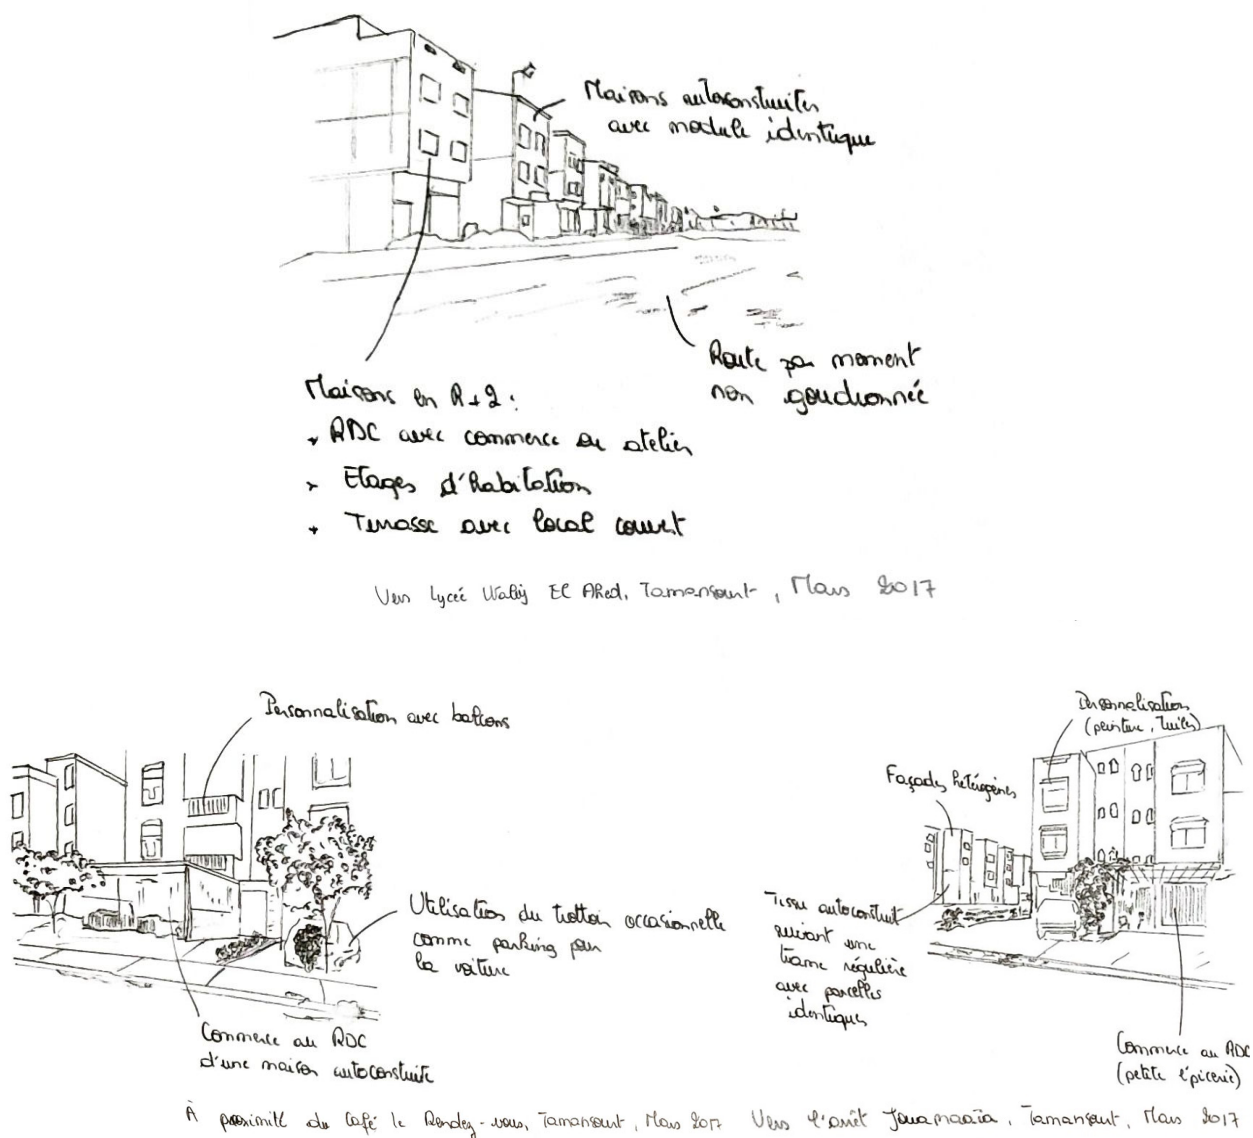 Maisons autoconstruites
avec module identique
Route par moment
non goudronnée
Maisons en R+2 :
+ RDC avec commerce ou atelier
+ Etages d'habitation
+ Terrasse avec local couvert
Vers Lycée Waliy El Ahed, Tamansourt, Mars 2017
Personnalisation avec balcons
Utilisation du trottoir occasionnelle
comme parking pour
la voiture
Commerce au RDC
d'une maison autoconstruite
À proximité du Café le Rendez-vous, Tamansourt, Mars 2017
Personnalisation
(peinture, tuiles)
Façades hétérogènes
Tissu autoconstruit
suivant une
trame régulière
avec parcelles
identiques
Commerce au RDC
(petite épicerie)
Vers l'arrêt Jouamaaia, Tamansourt, Mars 2017